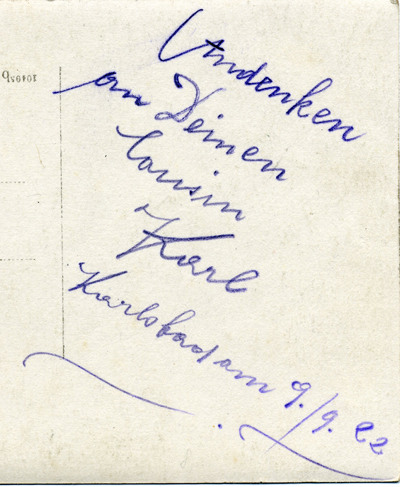 Andenken
an Deinen
Cousin
Karl
Karlsbad am 9./9. 22
10495b